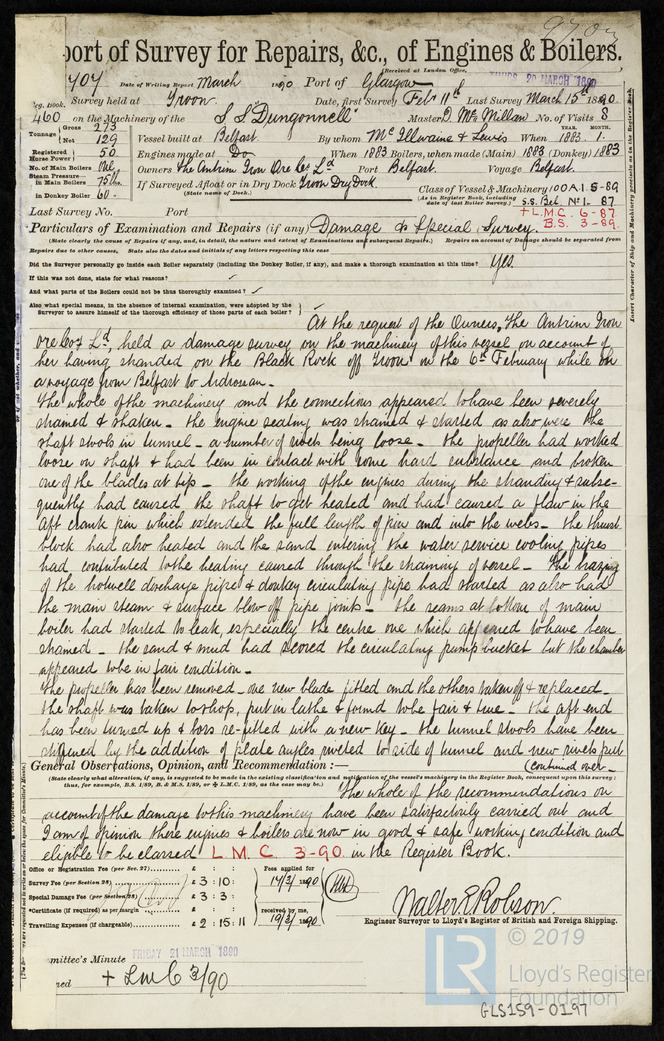 port of Survey for Repairs, &c., of Engines & Boilers.
(Received at London Office,
THURS 20 MARCH 1890
707 Date of Writing Report March 1890 Port of Glasgow
Survey held at Troon Date, first Survey Feb 11th Last Survey March 15th 1890
eg. Book.
460 on the Machinery of the S S "Dungonnell" Master D. McMillan No. of Visits 8
Tonnage Gross 273
Net 129
Vessel built at Belfast By whom McIllwaine & Lewis When YEAR. 1883. MONTH. 1.
Registered Horse Power 50
Engines made at Do When 1883 Boilers, when made (Main) 1883 (Donkey) 1883
No. of Main Boilers
Owners The Antrim Iron Ore Co Ld Port Belfast. Voyage Belfast.
Steam Pressure in Main Boilers 75 lbs.
in Donkey Boiler 60
If Surveyed Afloat or in Dry Dock Troon Dry Dock
(State name of Dock.)
Class of Vessel & Machinery 100A1 5-89
(As in Register Book, including date of last Boiler Survey.) S.S. Bel. No1- 87
+L.M.C. 6-87
B.S. 3-89.
Last Survey No. Port
Particulars of Examination and Repairs (if any) Damage & Special Survey.
(State clearly the cause of Repairs if any, and, in detail, the nature and extent of Examinations and subsequent Repairs. Repairs on account of Damage should be separated from
Repairs due to other causes. State also the dates and initials of any letters respecting this case
Did the Surveyor personally go inside each Boiler separately (including the Donkey Boiler, if any), and make a thorough examination at this time? Yes.
If this was not done, state for what reasons?
And what parts of the Boilers could not be thus thoroughly examined?
Also what special means, in the absence of internal examination, were adopted by the
Surveyor to assure himself of the thorough efficiency of those parts of each boiler?
At the request of the Owners, The Antrim Iron
Ore Coy Ld, held a damage survey on the machinery of this vessel on account of
her having stranded on the Black Rock off Troon on the 6th February while on
a voyage from Belfast to Ardrossan.
The whole of the machinery and the connections appeared to have been severely
strained & shaken - the engine seating was strained & started as also were the
shaft stools in tunnel - a number of rivets being loose - the propeller had worked
loose on shaft & had been in contact with some hard substance and broken
one of the blades at tip - the working of the engines during the stranding & subse-
quently had caused the shaft to get heated and had caused a flaw in the
aft crank pin which extended the full length of pin and into the webs - the thrust
block had also heated and the sand entering the water service cooling pipes
had contributed to the heating caused through the straining of vessel - The brazing
of the hotwell discharge pipe & donkey circulating pipe had started as also had
the main steam & surface blow off pipe joints - the seams at bottom of main
boiler had started to leak, especially the centre one which appeared to have been
strained - the sand & mud had scored the circulating pump bucket but the chamber
appeared to be in fair condition -
The propeller has been removed - one new blade fitted and the others taken off & replaced -
the shaft was taken to shop, put in lathe & found to be fair & true - the aft end
has been turned up & boss re-fitted with a new key - the tunnel stools have been
stiffened by the addition of plate angles riveted to side of tunnel and new rivets put
(continued over -
General Observations, Opinion, and Recommendation :—
(State clearly what alteration, if any, is suggested to be made in the existing classification and notification of the vessel's machinery in the Register Book, consequent upon this survey;
thus, for example, B.S. 1/89, B. & M.S. 1/89, or + L.M.C. 1/89, as the case may be.)
The whole of the recommendations on
account of the damage to this machinery have been satisfactorily carried out and
I am of opinion these engines & boilers are now in good & safe working condition and
eligible to be classed L. M. C. 3-90. in the Register Book.
Office or Registration Fee (per Sec. 27) £ : :
Survey Fee (per Section 28) £ 3 : 10 :
Special Damage Fee (per Section 28) £ 3 : 3 :
*Certificate (if required) as per margin £ : :
Travelling Expenses (if chargeable) £ 2 : 15 : 11
Fees applied for
14/3/1890
received by me,
19/3/1890
Walter E. Robson
Engineer Surveyor to Lloyd's Register of British and Foreign Shipping.
FRIDAY 21 MARCH 1890
mmittee's Minute
ned + LMC 3/90
© 2019
LR
Lloyd's Register
Foundation
GLS159-0197